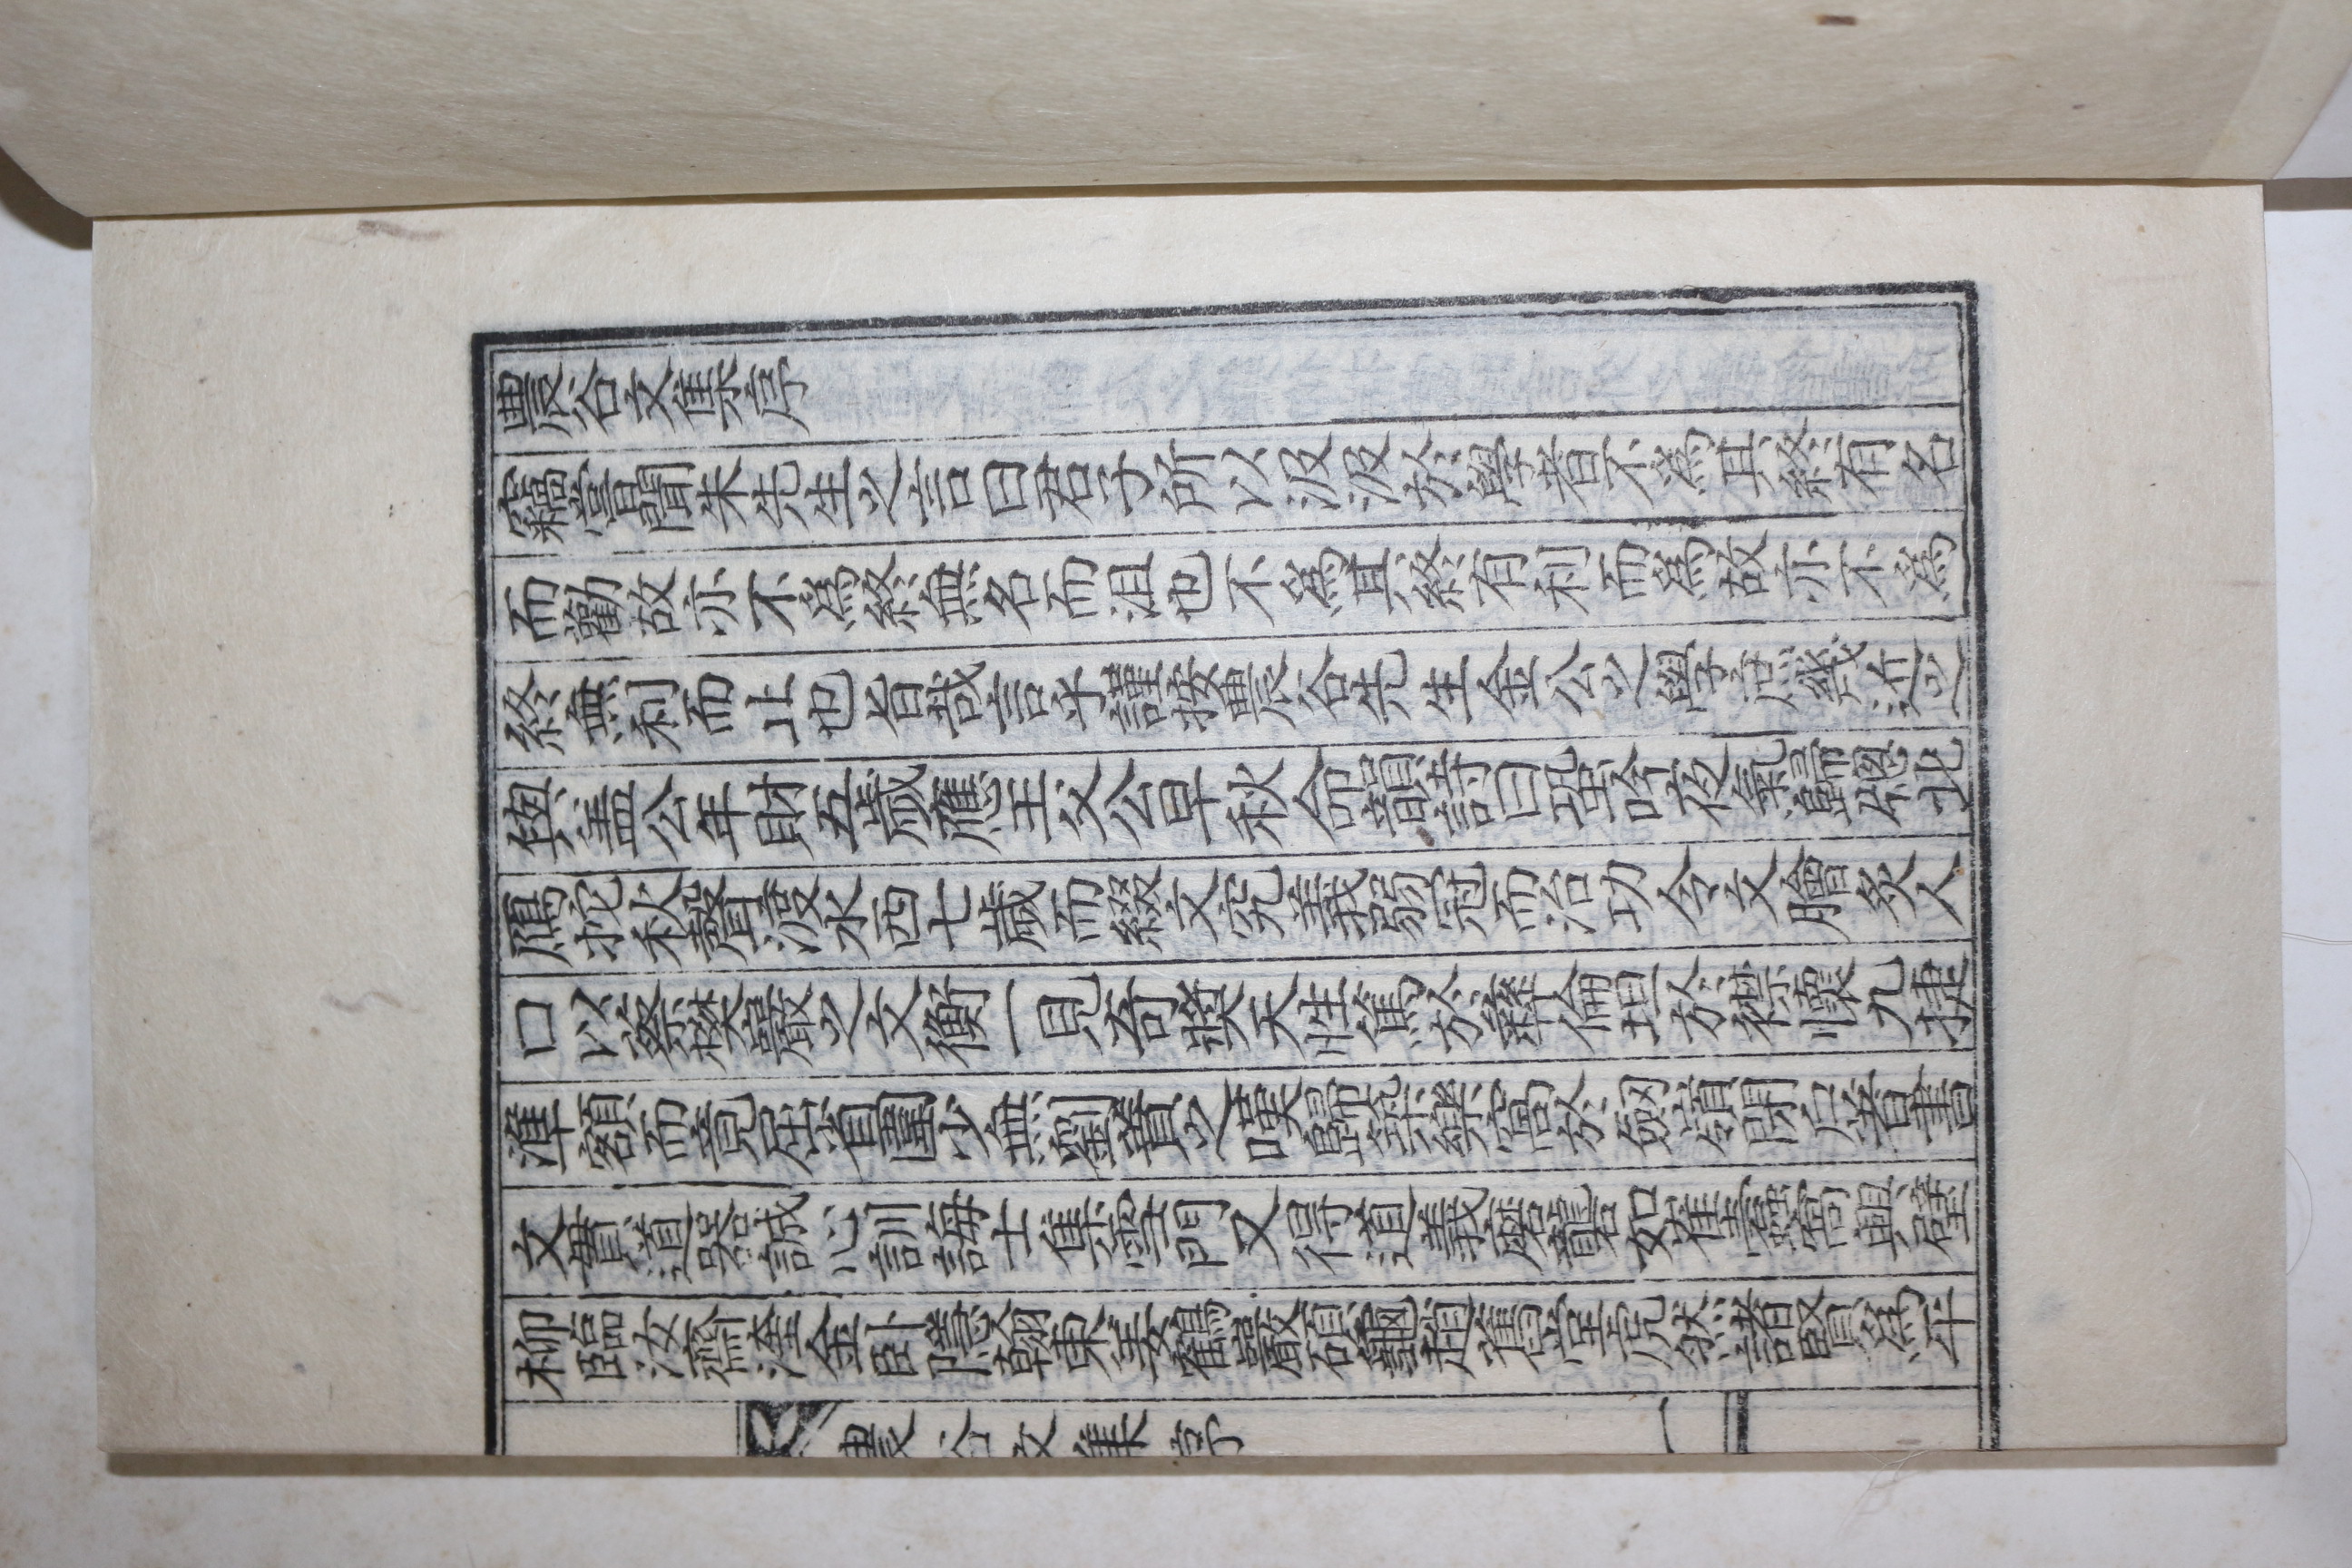 農谷文集序
竊嘗聞朱先生之言曰君子所以汲汲於學者不爲其終有名
而勸故亦不爲終無名而沮也不爲其終有利而爲故亦不爲
終無利而止也旨哉言乎謹按農谷先生金公之學庶幾近之
與盖公年財五歲應王父公早秋命韻詩曰蛩吟夜氣歸牕北
鴈拕秋聲渡水西七歲而綴文究義弱冠而治功令文膾炙人
口以蔡樊巖之文衡一見奇奬天性篤於彝倫坦於襟懷九捷
準額而竟屈省圍少無劉蕡之嘆歸築樂窩於劒嶺閉户著書
文貫道器誠心訓誨士集雪門又得道義磨礱如崔蠹窩興璧
柳臨汝齋㙻金卧隱翰東姜鶴巖碩龜趙舊堂虎然諸賢爲平
農谷文集序
一